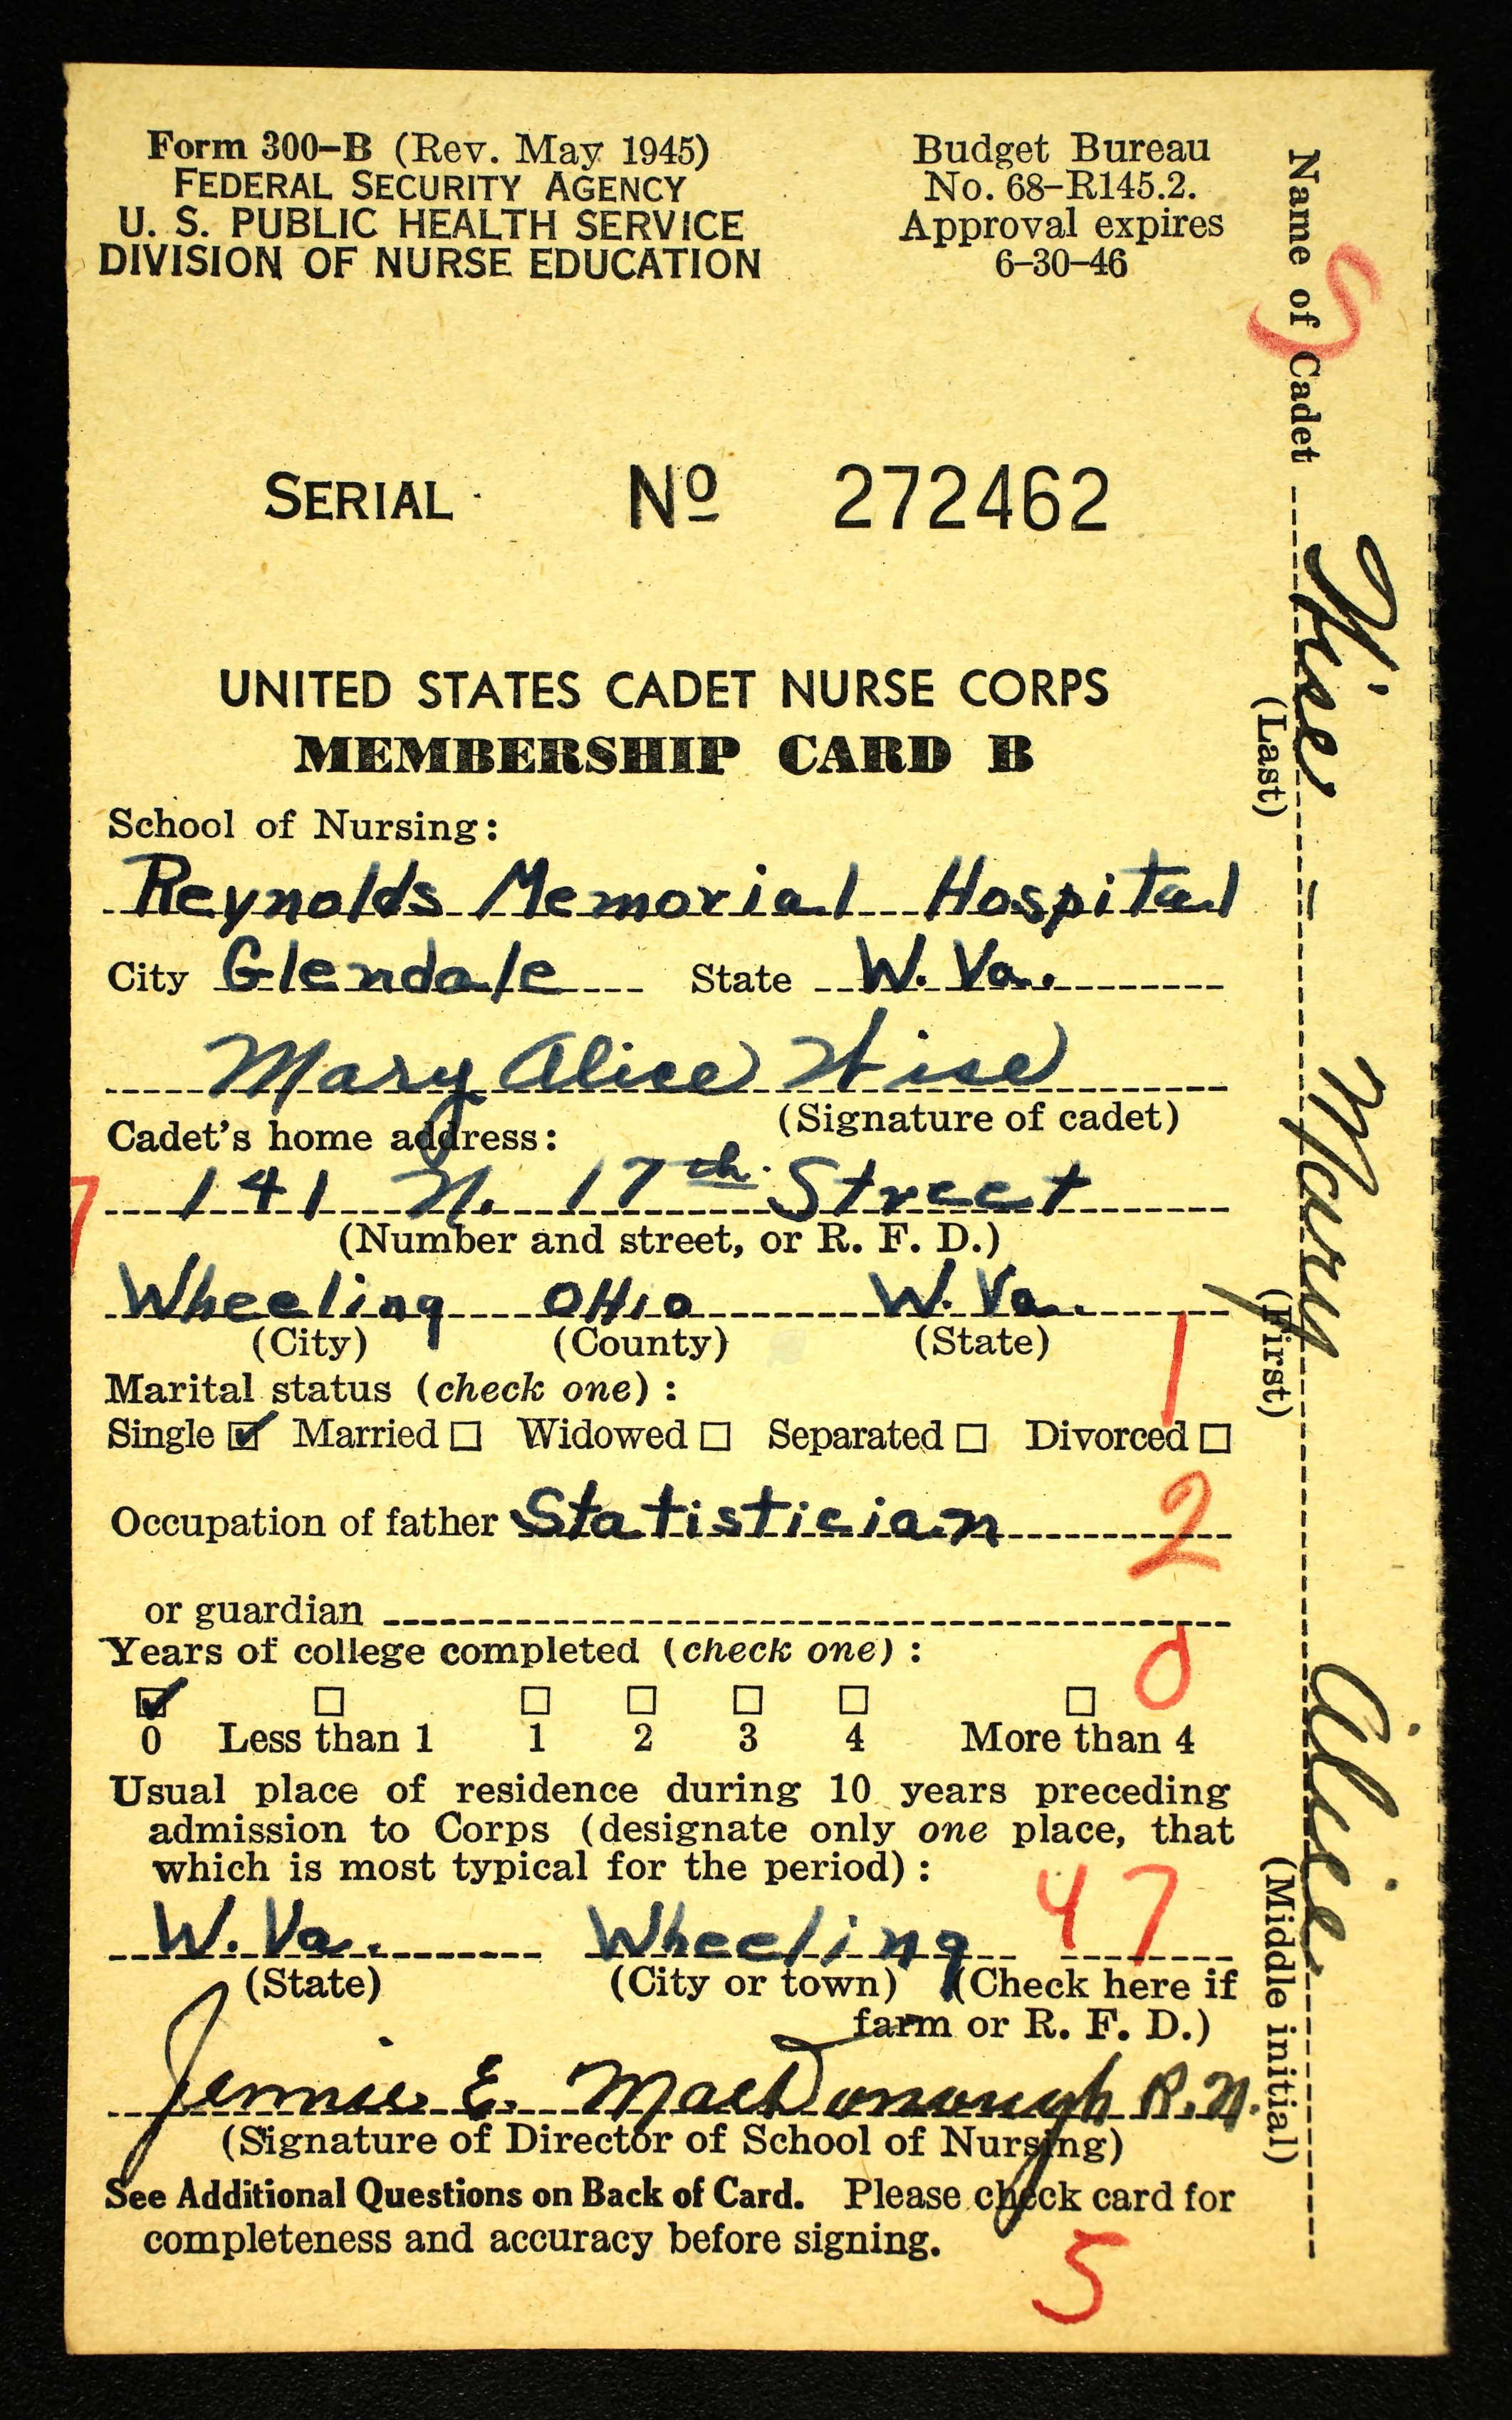 Form 300–B (Rev. May 1945)
FEDERAL SECURITY AGENCY
U. S. PUBLIC HEALTH SERVICE
DIVISION OF NURSE EDUCATION
Budget Bureau
No. 68–R145.2.
Approval expires
6–30–46
SERIAL Nº 272462
UNITED STATES CADET NURSE CORPS
MEMBERSHIP CARD B
School of Nursing:
Reynolds Memorial Hospital
City Glendale State W. Va.
Mary Alice Wise
(Signature of cadet)
Cadet's home address:
7
141 N. 17th Street
(Number and street, or R. F. D.)
Wheeling OHio W. Va.
(City) (County) (State)
1
Marital status (check one) :
Single ☑ Married ☐ Widowed ☐ Separated ☐ Divorced ☐
Occupation of father Statistician 2
or guardian
Years of college completed (check one) : 0
☑ ☐ ☐ ☐ ☐ ☐ ☐
0 Less than 1 1 2 3 4 More than 4
Usual place of residence during 10 years preceding
admission to Corps (designate only one place, that
which is most typical for the period) :
W. Va. Wheeling 47
(State) (City or town) (Check here if
farm or R. F. D.)
Jennie E. MacDonough R.N.
(Signature of Director of School of Nursing)
See Additional Questions on Back of Card. Please check card for
completeness and accuracy before signing.
5
5
Name of Cadet Wise – Mary Alice
(Last) (First) (Middle initial)